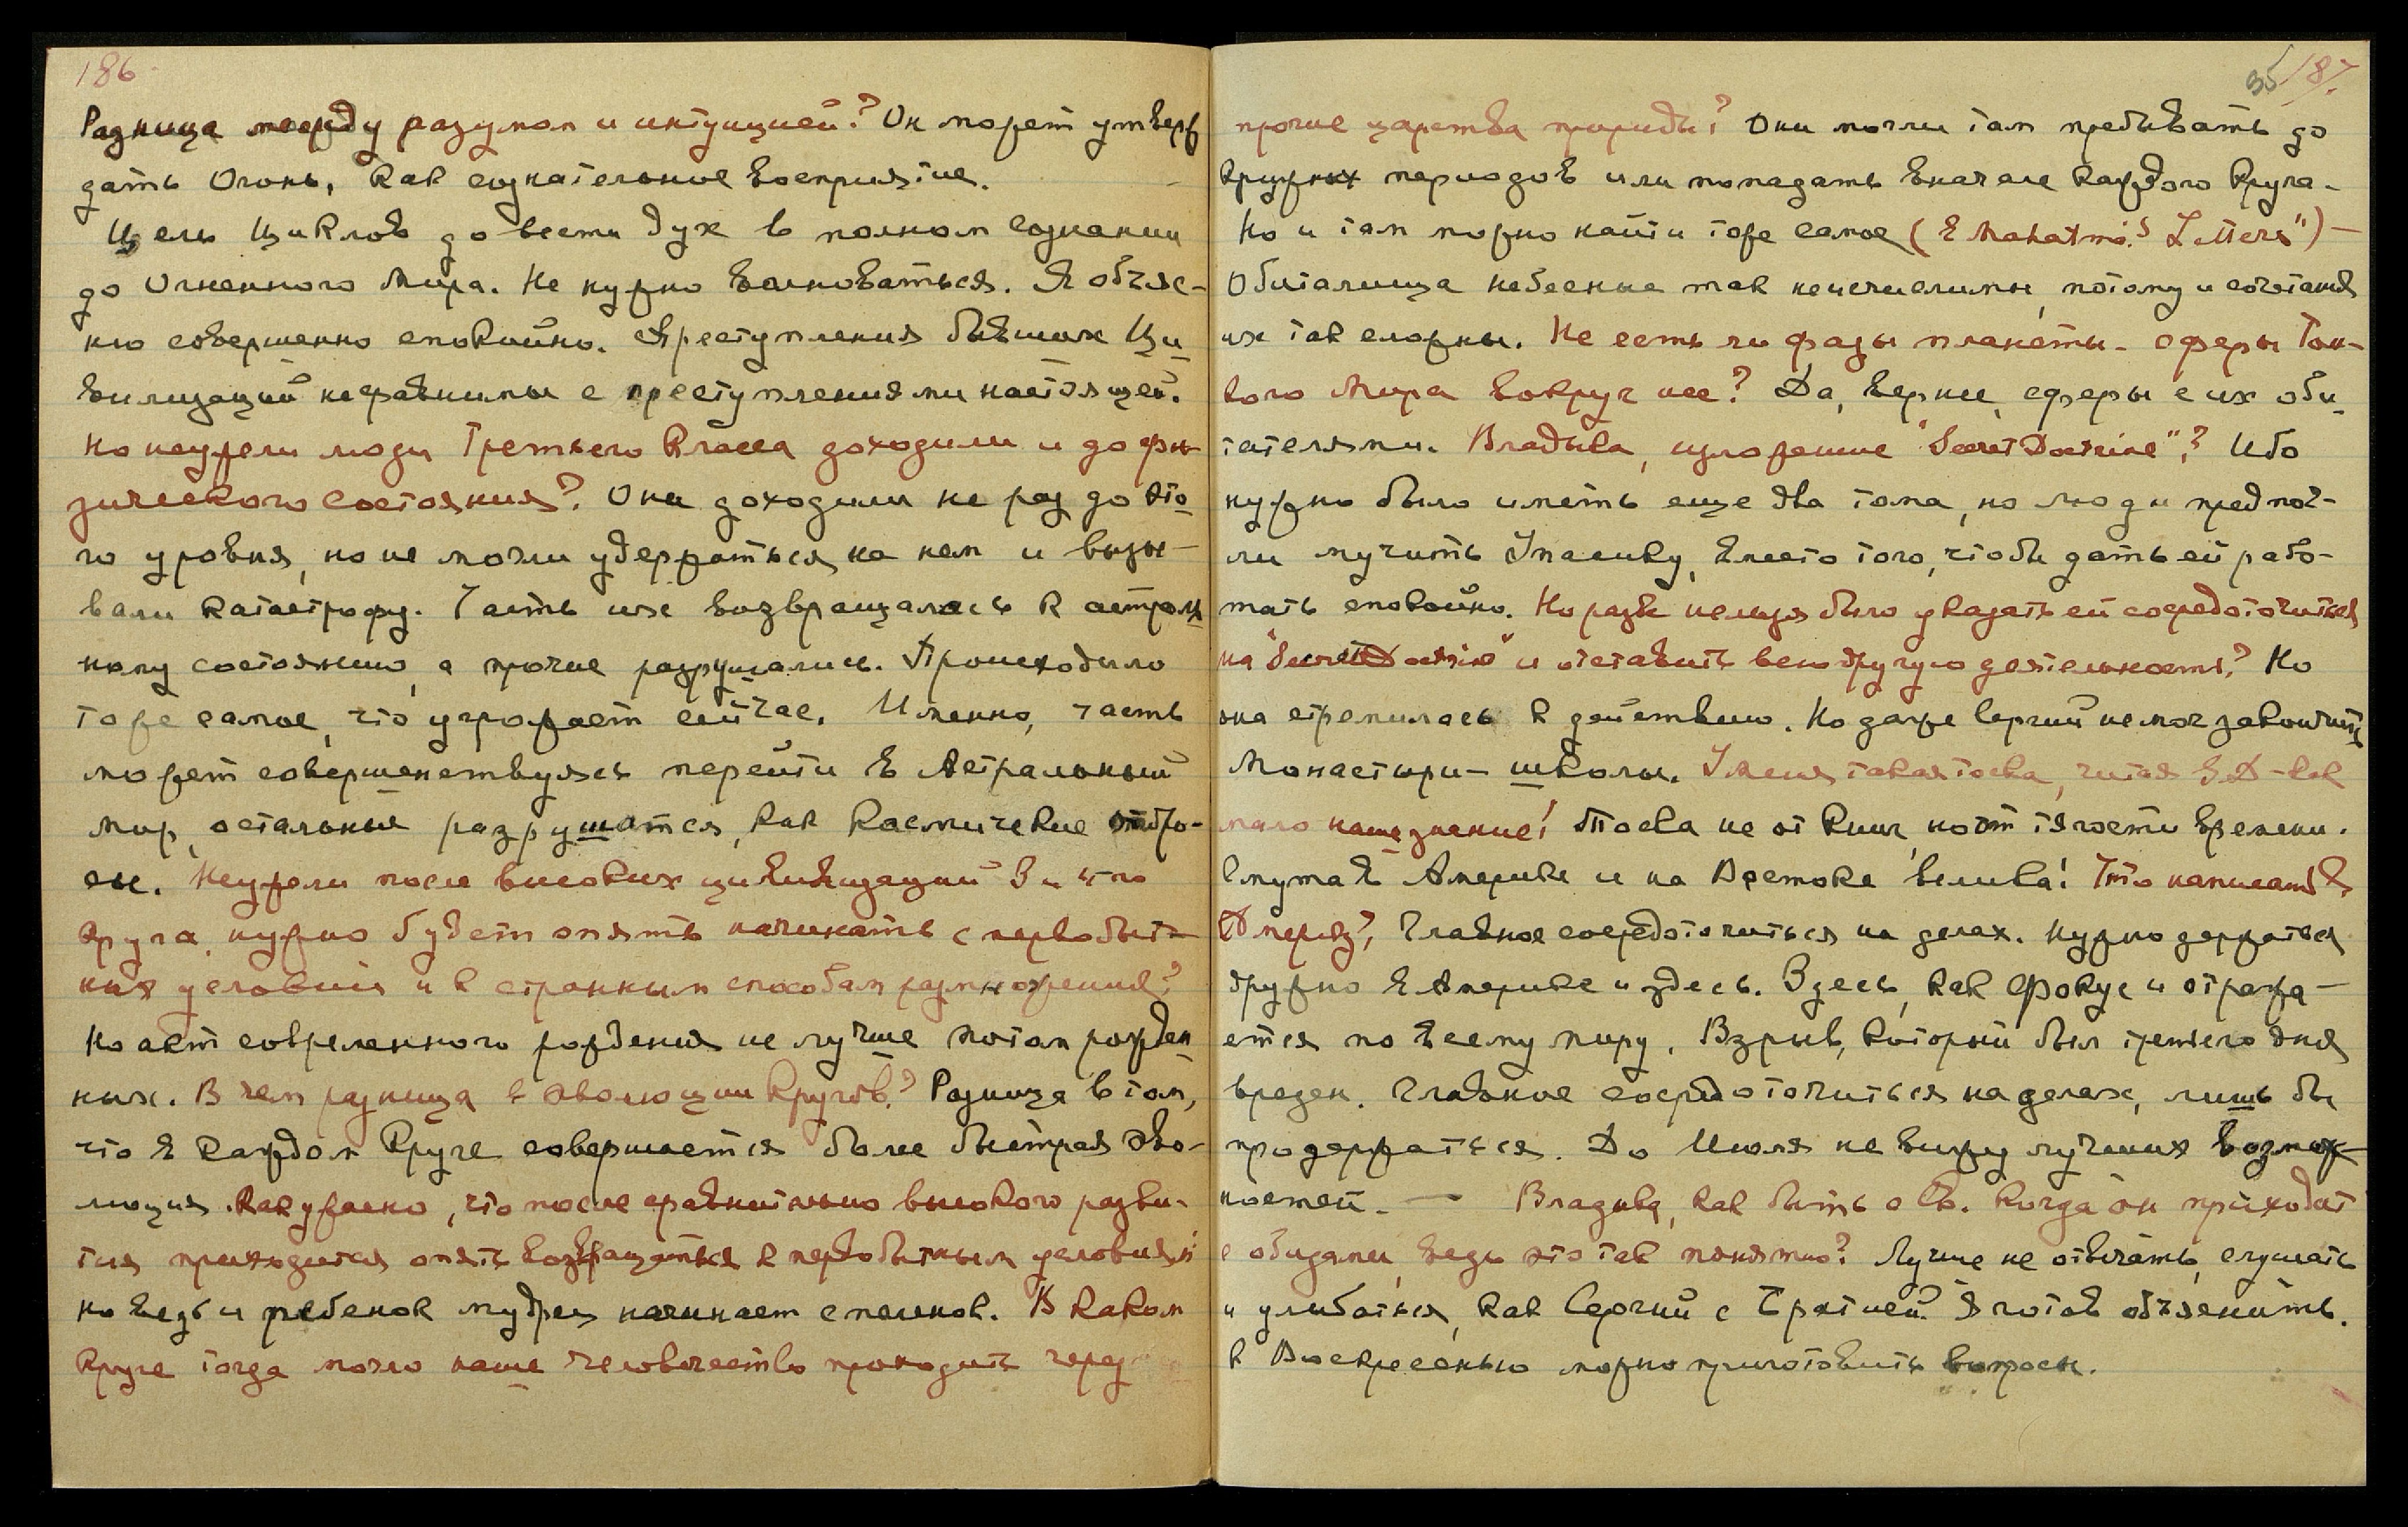 186
Разница между разумом и интуицией? Он может утверж
дать Огонь, как сознательное восприятие.
Цель Циклов довести дух в полном сознании
до Огненного Мира. Не нужно волноваться. Я объяс-
ню совершенно спокойно. Преступления бывших Ци
вилизаций несравнимы с преступлениями настоящей.
Но неужели люди Третьего Класса доходили и до фи
зического состояния? Они доходили не раз до это
го уровня, но не могли удержаться на нем и вызы-
вали катастрофу. Часть их возвращалась к астраль
ному состоянию, а прочие разрушались. Происходило
то же самое, что угрожает сейчас. Именно, часть
может совершенствуясь перейти в Астральный
мир, остальные разрушатся, как космические отбро-
сы. Неужели после высоких цивилизаций 3 и 4-го
Круга нужно будет опять начинать с первобыт-
ных условий и к странным способам размножения?
Но акт современного рождения не лучше потом рожден
ных. В чем разница в эволюции Кругов? Разница в том,
что в каждом Круге совершается более быстрая эво-
люция. Как ужасно, что после сравнительно высокого разви-
тия приходится опять возвращаться к первобытным условиям!
Но ведь и ребенок мудрец начинает с пеленок. В каком
Круге тогда могло наше человечество проходить через
35 187.
прочие царства природы? Они могли там пребывать до
Кружных периодов или попадать вначале каждого Круга.
Но и там можно найти то же самое (в Mahatma's Letters") —
Обиталища небесные так неисчислимы, потому и сочетания
их так сложны. Не есть ли фазы планеты - сферы Тон-
кого Мира вокруг нее? Да, вернее, сферы с их оби
тателями. Владыка, изложение "Secret Doctrine"? Ибо
нужно было иметь еще два тома, но люди предпоч-
ли мучить Упасику, вместо того, чтобы дать ей рабо-
тать спокойно. Но разве нельзя было указать ей сосредоточиться
на "Secret Doctrine" и оставить всю другую деятельность? Но
она стремилась к действию. Но даже Сергий не мог закончить
Монастыри- школы. У меня такая тоска, читая S.D - как
мало наше знание! Тоска не от книг, но от тягости времени.
Смута в Америке и на Востоке велика! Что написать в
Америку? Главное сосредоточиться на делах. Нужно держаться
дружно в Америке и здесь. Здесь, как фокус и отража-
ется по всему миру. Взрыв, который был третьего дня
вреден. Главное сосредоточиться на делах, лишь бы
продержаться. До Июля не вижу лучших возмож-
ностей. — Владыка, как быть с Св. когда он приходит
с обидами, ведь это так понятно? Лучше не отвечать, слушать
и улыбаться, как Сергий с Братией. Я готов объяснить.
К Воскресенью можно приготовить вопросы.